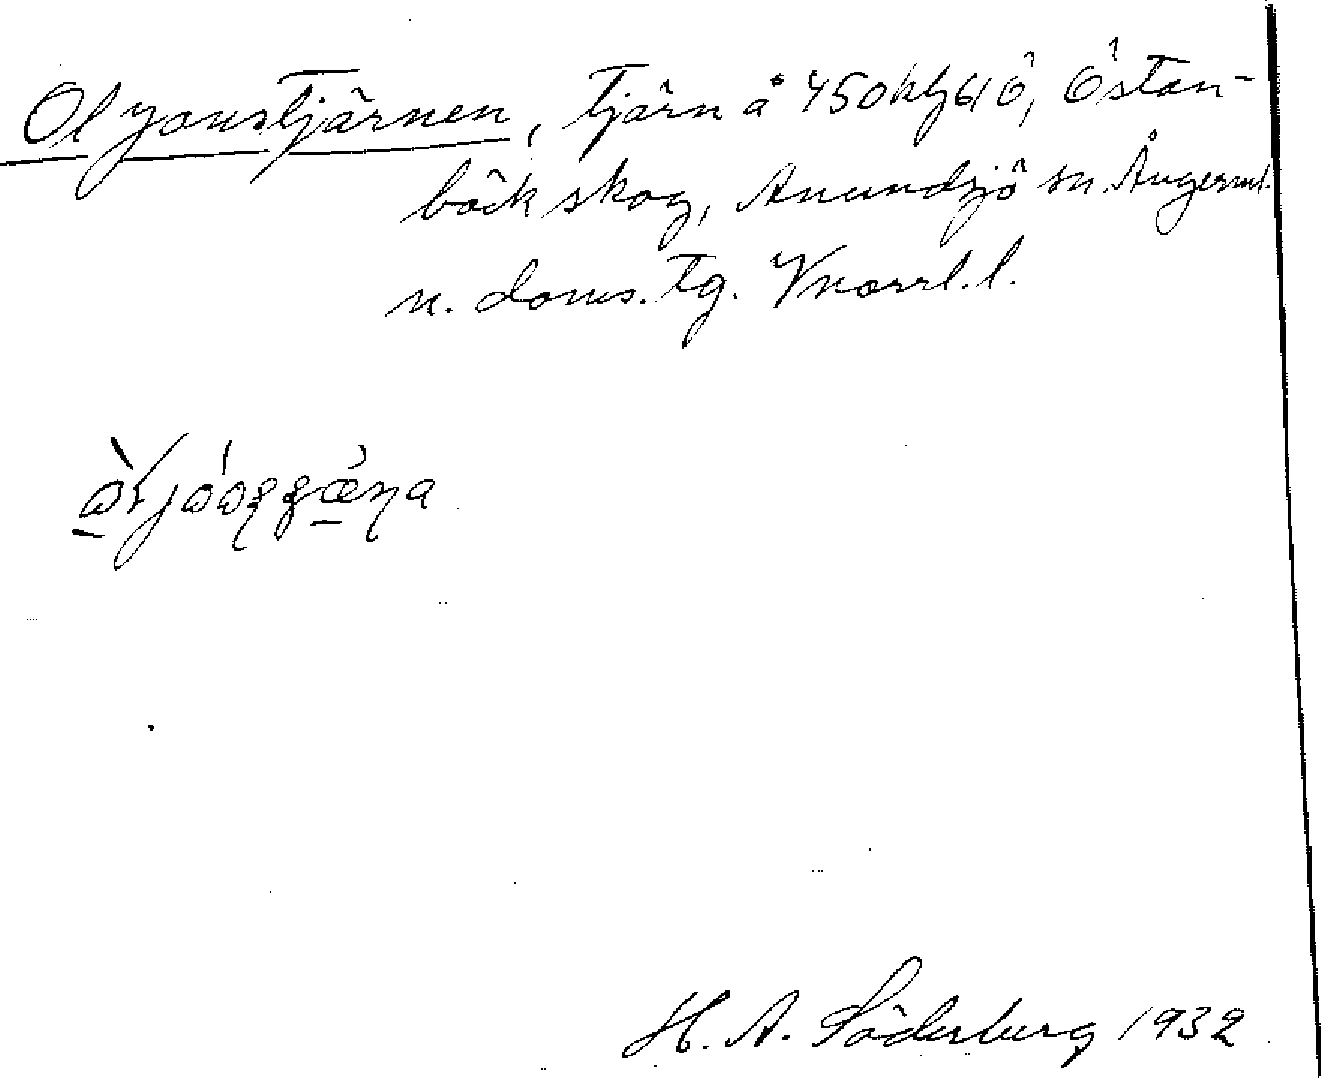 Ol Jonstjärnen, Tjärn å 450 kbf 61ö, Östan-
bäck skog, Anundsjö sn. Ångerml.
n. doms. tg. Vnorrl. l.
H. A. Söderberg 1932